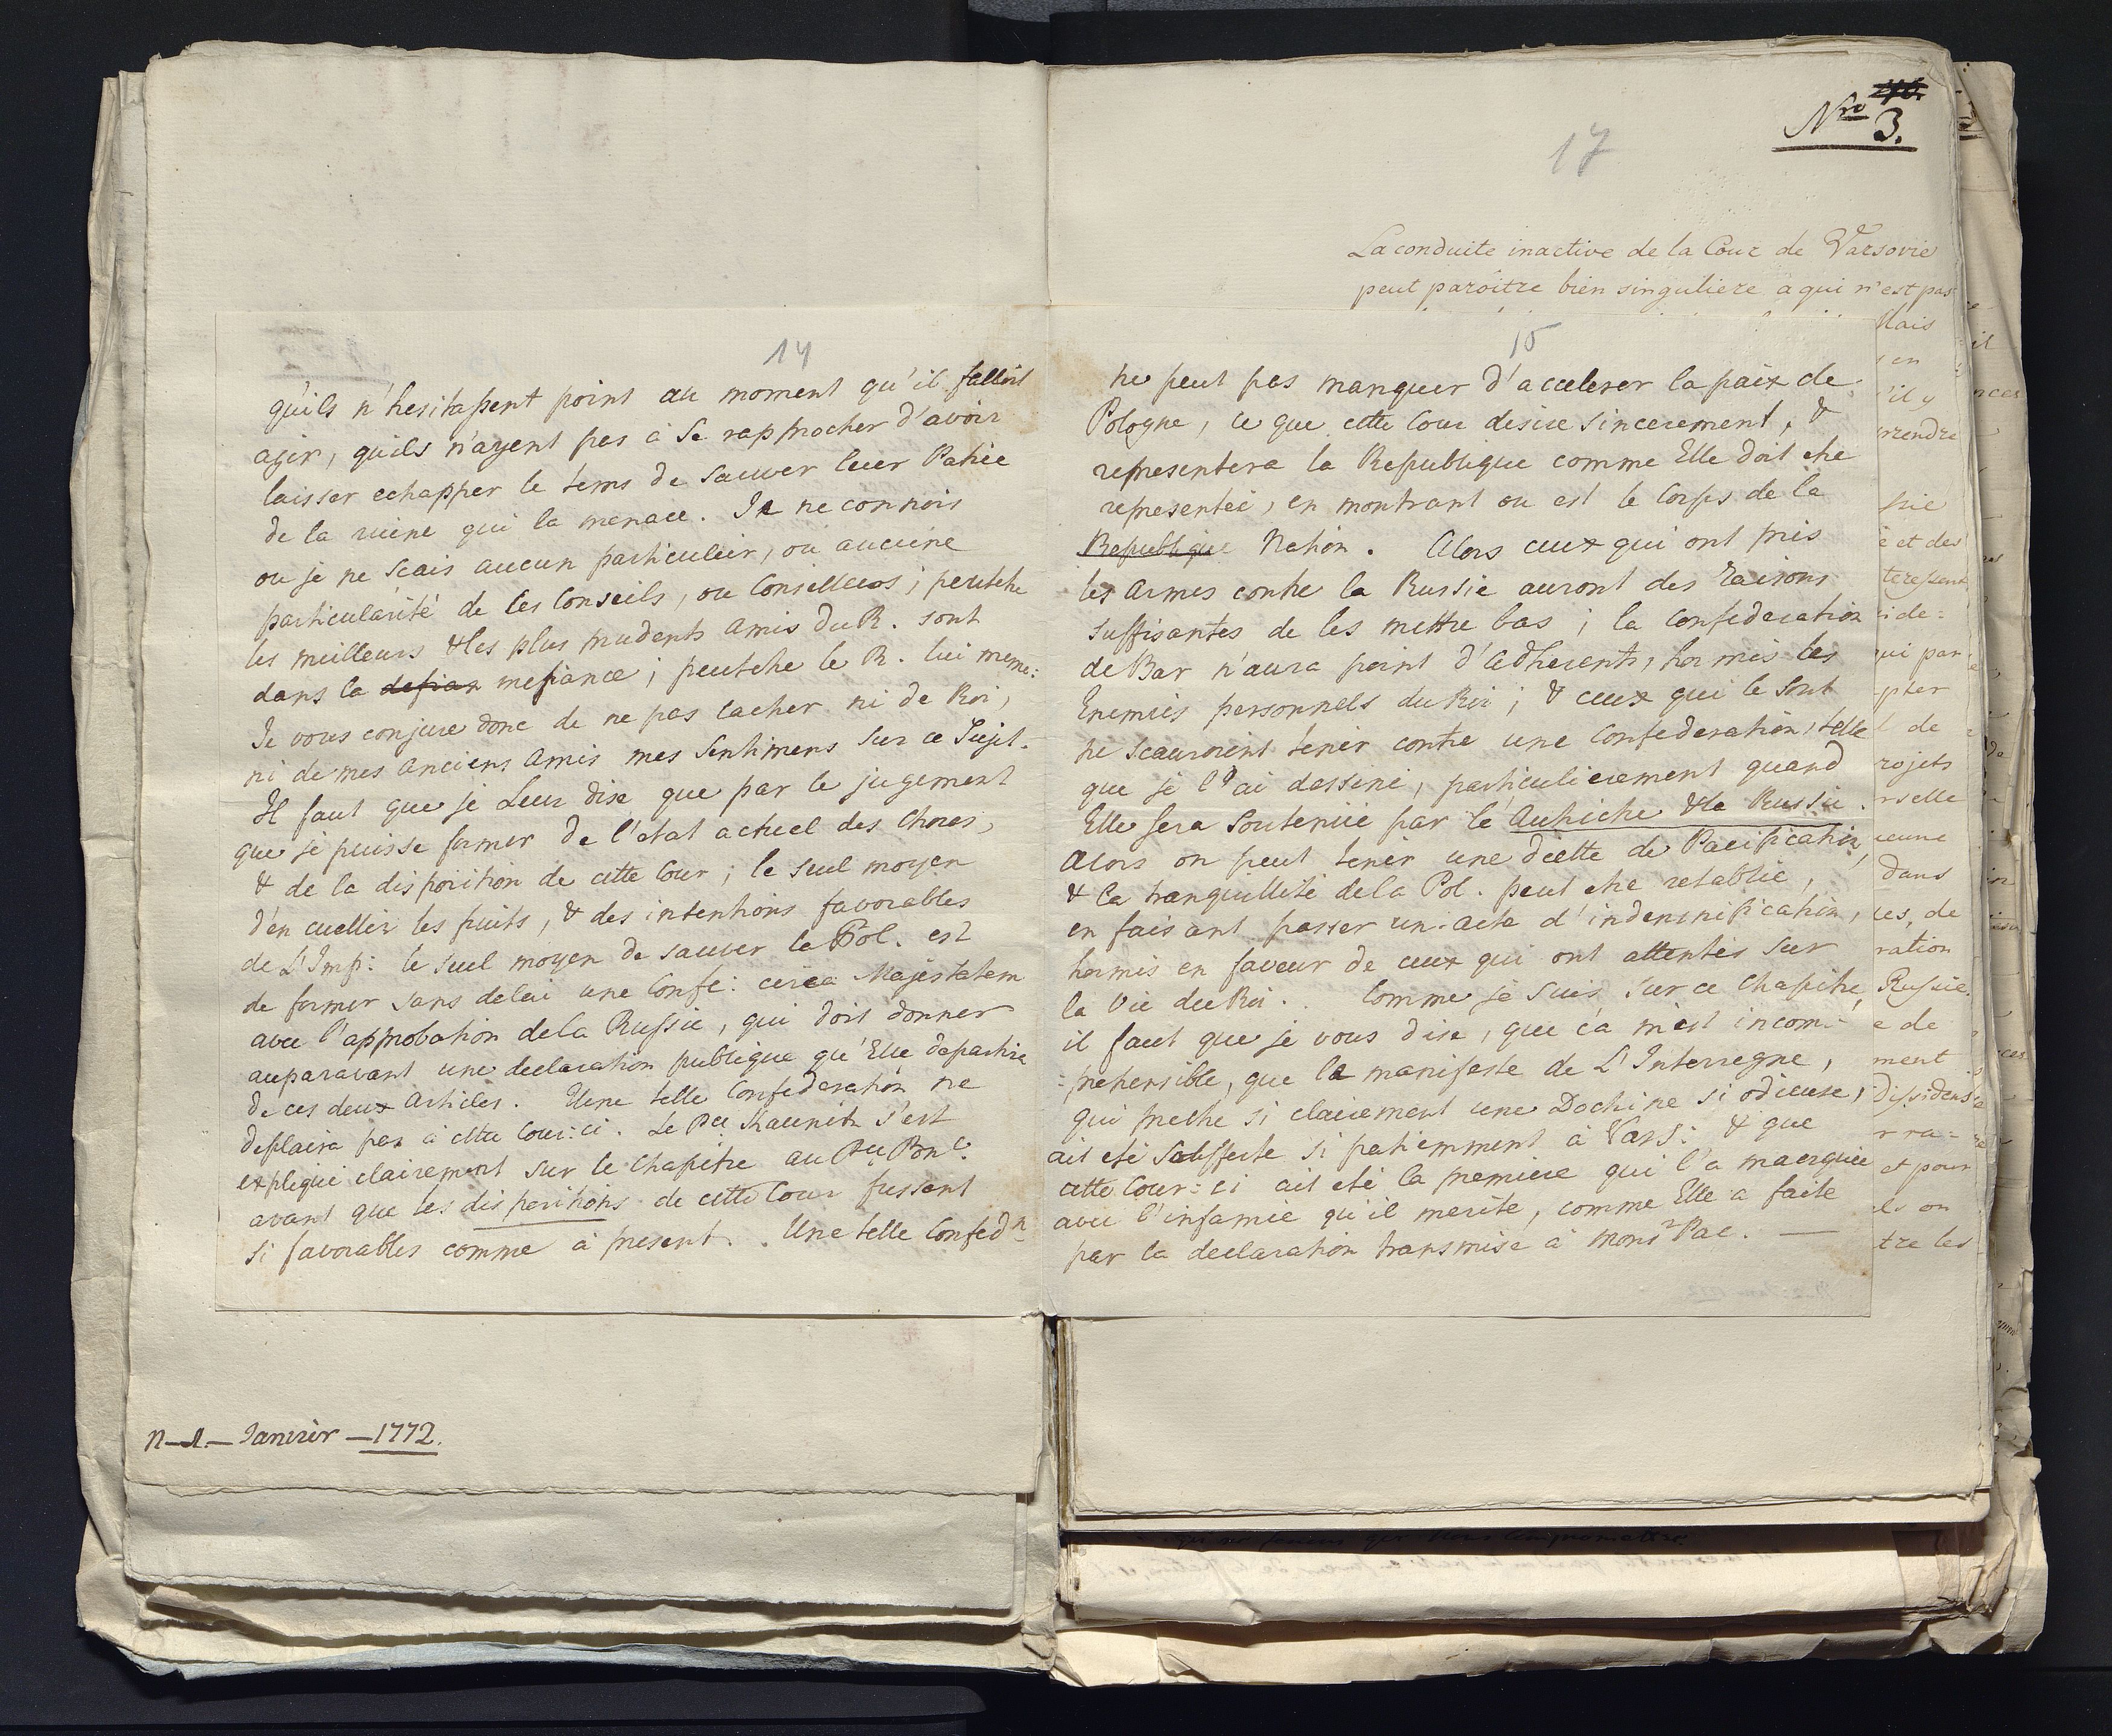 14
qu'ils n'hesitassent point au moment qu'il falloit
agir, qu'ils n'ayent pas à se rapprocher d'avoir
laisser echapper le tems de sauver leur Patrie
de la ruine qui la menace. Je ne connois
ou je ne scais aucun particulier, ou aucune
particularité de ses Conseils, ou Conseillers; peutetre
les meilleurs & les plus prudents amis du R. sont
dans la defian mefiance; peutetre le R. lui meme:
Je vous conjure donc de ne pas cacher ni de Roi,
ni de mes Anciens Amis mes Sentimens sur ce Sujet.
Il faut que je Leur dise que par le jugement
que je puisse former de l'etat actuel des Choses,
& de la disposition de cette Cour; le seul moyen
d'en cuellir les fruits, & des intentions favorables
de L'Imp: le seul moyen de sauver la Pol. est
de former sans delai une Confe: circa Majestatem
avec l'approbation de la Russie, qui doit donner
auparavant une declaration publique qu'Elle departira
de ces deux Articles. Une telle Confederation ne
deplaira pas à cette Cour:ci. Le Pce Kaunitz s'est
expliqué clairement sur le Chapitre au Pce Ponc.
avant que les dispositions de cette Cour fussent
si favorables comme à present. Une telle Confedn
n-1-Janvier-1772.
Nro 3.
17
La conduite inactive de la Cour de Varsovie
peut paroître bien singuliere a qui n'est pas
15
ne peut pas manquer d'accelerer la paix de
Pologne, ce que cette Cour desire sincerement, &
representera la Republique comme Elle doit etre
representée, en montrant ou est le Corps de la
Republique Nation. Alors ceux qui ont pris
les Armes contre la Russie auront des raisons
suffisantes de les mettre bas; la Confederation
de Bar n'aura point d'adherents, hormis les
Enemies personnels du Roi; & ceux qui le sont
ne scauroient tenir contre une Confederation, telle
que je l'ai dessiné, particulierement quand
Elle sera soutenüe par le Autriche & la Russie.
Alors on peut tenir une diette de Pacification,
& la tranquillité de la Pol. peut etre retablie,
en faisant passer un acte d'indemnification,
hormis en faveur de ceux qui ont attentés sur
la Vie du Roi. Comme je suis sur ce Chapitre,
il faut que je vous dise, que ca m'est incom-
=prehensible, que le manifeste de L'Interregne,
qui preche si clairement une Doctrine si odieuse,
ait eté soufferte si patiemment à Vars: & que
cette Cour:ci ait eté la premiere qui l'a marquée
avec l'infamie qu'il merite, comme Elle a faite
par la declaration transmise à Monsr Pac.
Mais
en
il y
prendre
et des
teressent
ide=
qui par
pter
de
rojets
rselle
dans
ces, de
ration
Russie.
e de
ment
Dissidens
et pour
ls on
tre les